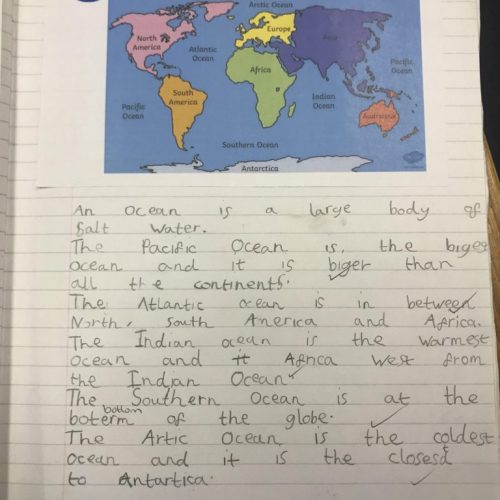 Arctic Ocean
North America
Europe
Asia
Atlantic Ocean
Pacific Ocean
Africa
South America
Indian Ocean
Pacific Ocean
Australasia
Southern Ocean
Antarctica
An ocean is a large body of
salt water.
The Pacific Ocean is, the biges
ocean and it is biger than
all the continents.
The Atlantic ocean is in between
North, South America and Africa.
The Indian ocean is the warmest
ocean and it Africa west from
the Indian Ocean
The Southern Ocean is at the
bottom
boterm of the globe.
The Artic Ocean is the coldest
ocean and it is the closesd
to Antartica.